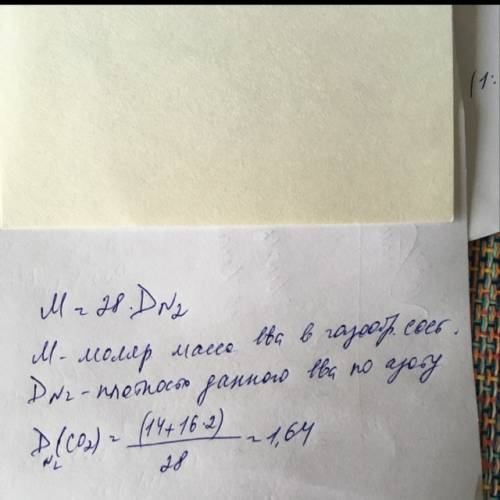 (1:
M = 28 · D N2
M - моляр. масса в-ва в газообр. сост.
D N2 - плотность данного в-ва по азоту
D N2 (CO2) = (14+16·2) / 28 = 1,64